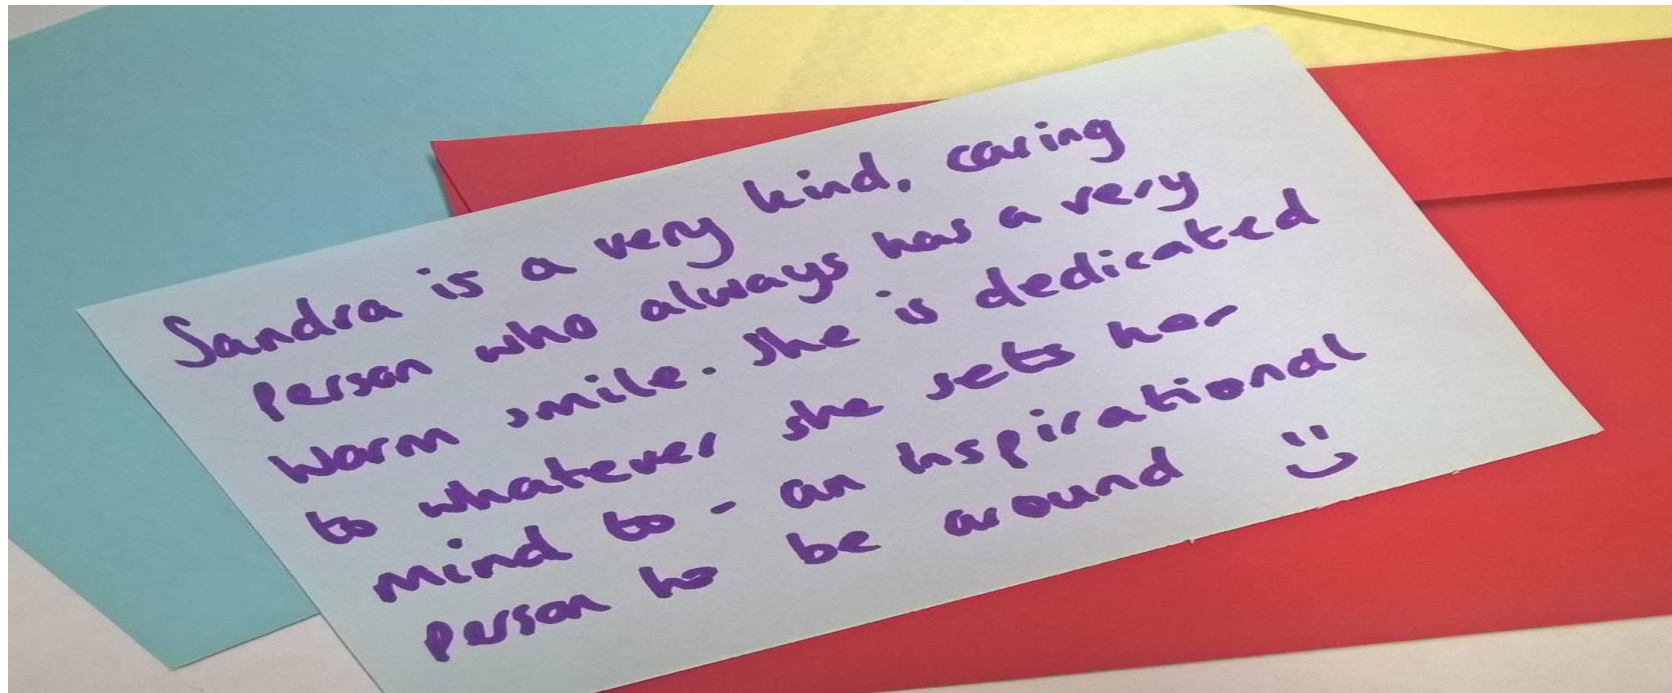 Sandra is a very kind, caring
person who always has a very
warm smile. She is dedicated
to whatever she sets her
mind to - an inspirational
person to be around :)